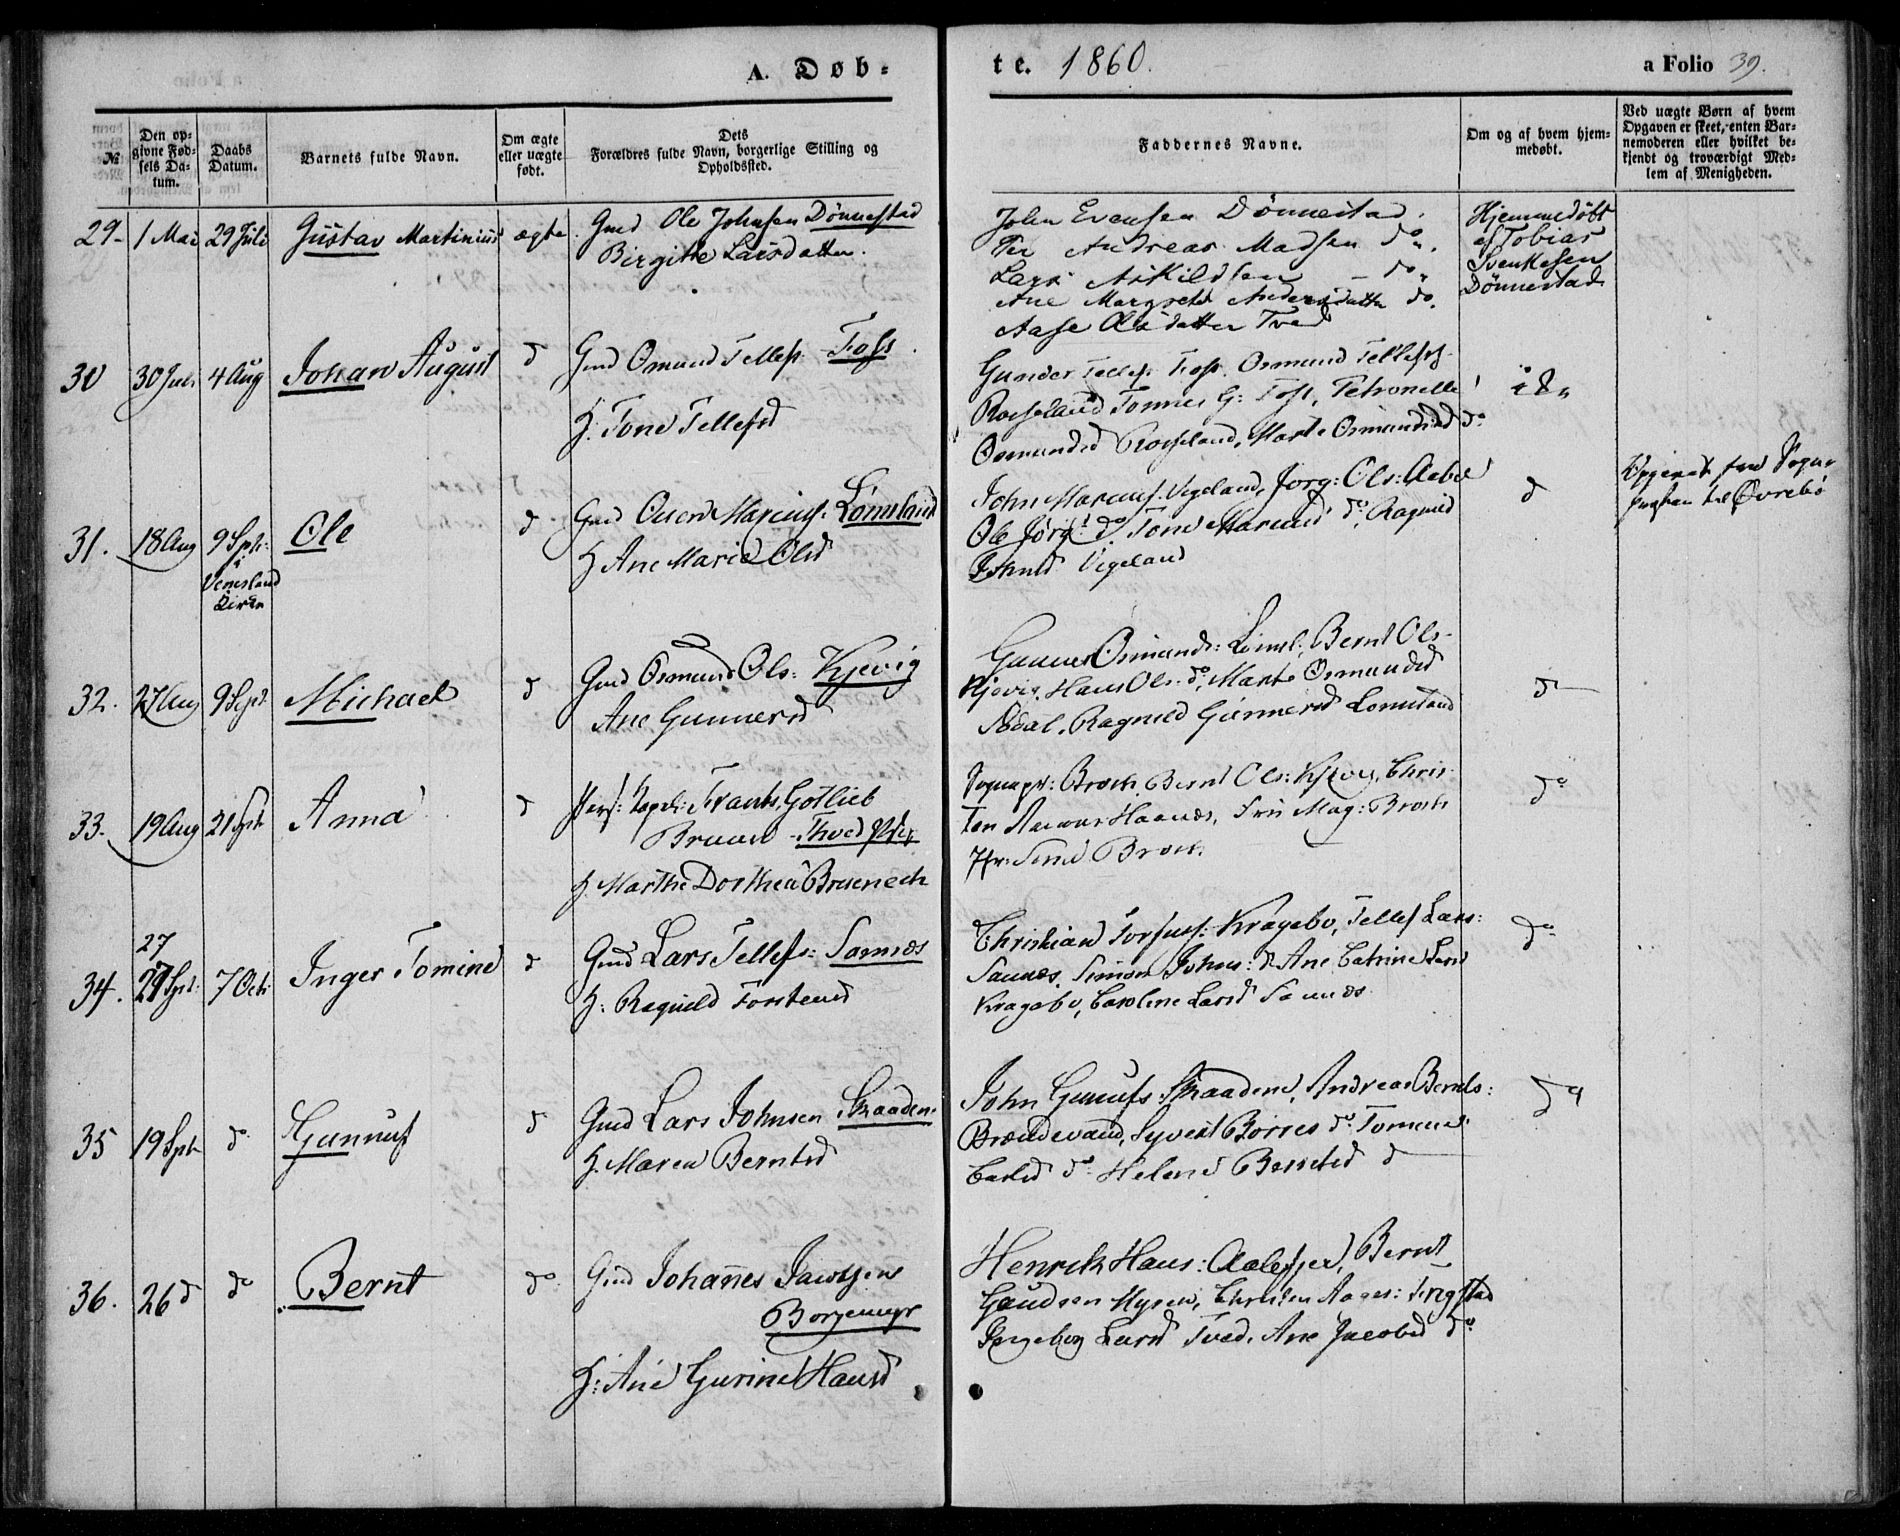 A. Døb-
te. 1860.
a Folio 39.
№
Den opgivne Fødsels Datum.
Daabs Datum.
Barnets fulde Navn.
Om ægte eller uægte født.
Dets Forældres fulde Navn, borgerlige Stilling og Opholdssted.
Faddernes Navne.
Om og af hvem hjemmedøbt.
Ved uægte Børn af hvem Opgaven er skeet, enten Barnemoderen eller hvilket bekjendt og troværdigt Medlem af Menigheden.
29- 1 Mai 29 Juli Gustav Martinius ægte Gmd Ole Johnsen Dönnestad
Birgitte Larsdatter.
John Evensen Dönnestad.
Per Andreas Madsen do.
Lars Askildsen - do.
Ane Margrete Andersdatter do.
Aase Olsdatter Tved
Hjemmedöbt
af Tobias
Svenkesen
Dönnestad
30 30 Juli 4 Aug Johan August d Gmd Osmund Tellefs. Foss
H. Tone Tellefsd
Gunder Tellefs. Foss. Osmund Tellefs.
Rosseland Tonnes G: Foss, Petronelle
Osmundsd Rosseland, Marte Osmundsd do
31. 18 Aug 9 Spt: i Venesland Kirke
Ole d Gmd Lömsland
H Ane Marie Olsd
John Vigeland, Jørg: Ols: Aabel
Ole Jørg: do Tone do, Ragnild
Vigeland
d
Øvrebø
32. 27 Aug 9 Sept Michael d Gmd Osmund Ols: Kjevig
Ane Gunnersd
Gunner Osmunds: Lömsl:, Bernt Ols-
Kjevig. Hans Ols. do, Marte Osmundsd
Ragnild Gunnersd Lomsland
d
33. 19 Aug 21 Spt Anna d Pers: Capel: Frants Gotlieb
Bruun - Tved
H Marthe Dorthea
Sognepr: Broch, Bernt Ols: Kjevig, Chris-
ten Haanes, Fru Mag: Broch
Jfr. Broch.
do
34. 27 27 Spt: 7 Oct: Inger Tomine d Gmd Lars Tellefs: Sannes
H: Ragnild Torstensd
Christian Kragebo, Tellef Lars:
Sannes, Simon Johns: d Ane Catrine Larsd
Kragebo, Caroline Larsd Sannes
do
35 19 Spt do Gunnuf d Gmd Lars Johnsen Straaden
H. Maren Berntsd
John Gunnufs Straadene, Andreas Bernts:
Brændevand, Syvert Börres do Tomine
Carlsd do Helene Berntsd d
do
36. 26 d do Bernt do Gmd Johannes Jacobsen
Borgemyr
H: Ane Gurine Hansd
Henrik Hans: Aalefjer, Bernt
Gaudsen Myren, Christen Aages: Tingstad
Ingeborg Larsd Tved, Ane Jacobsd do